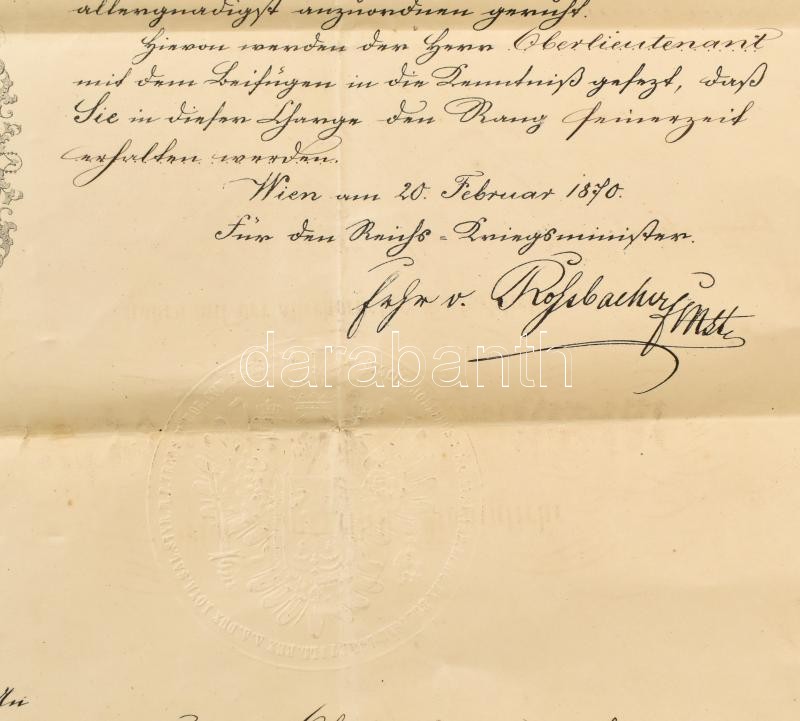 allergnädigst anzuordnen geruht.
Hievon werden der Herr Oberlieutenant
mit dem Beifügen in die Kenntniß gesezt, daß
Sie in dieser Charge den Rang seinerzeit
erhalten werden.
Wien am 20. Februar 1870.
Für den Reichs-Kriegsminister.
Frhr v. Rossbacher FMLt
darabanth
An